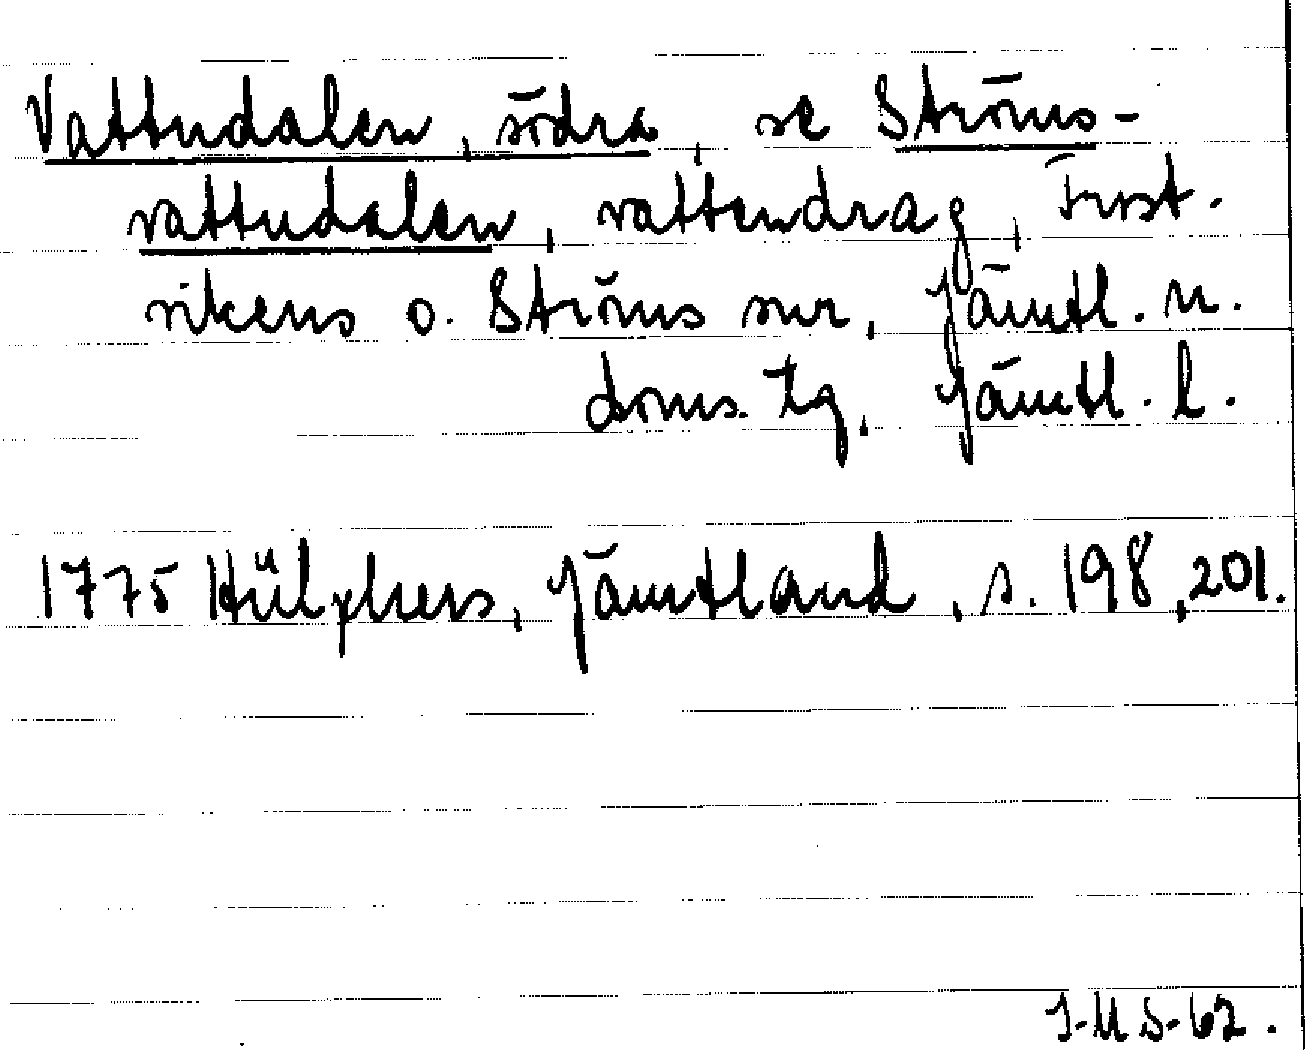 Vattudalen, södra, se Ströms-
vattudalen, vattendrag, Frost-
vikens o. Ströms snr, Jämtl. n.
doms. tg, Jämtl. l.
1775 Hülphers, Jämtland, s. 198, 201.